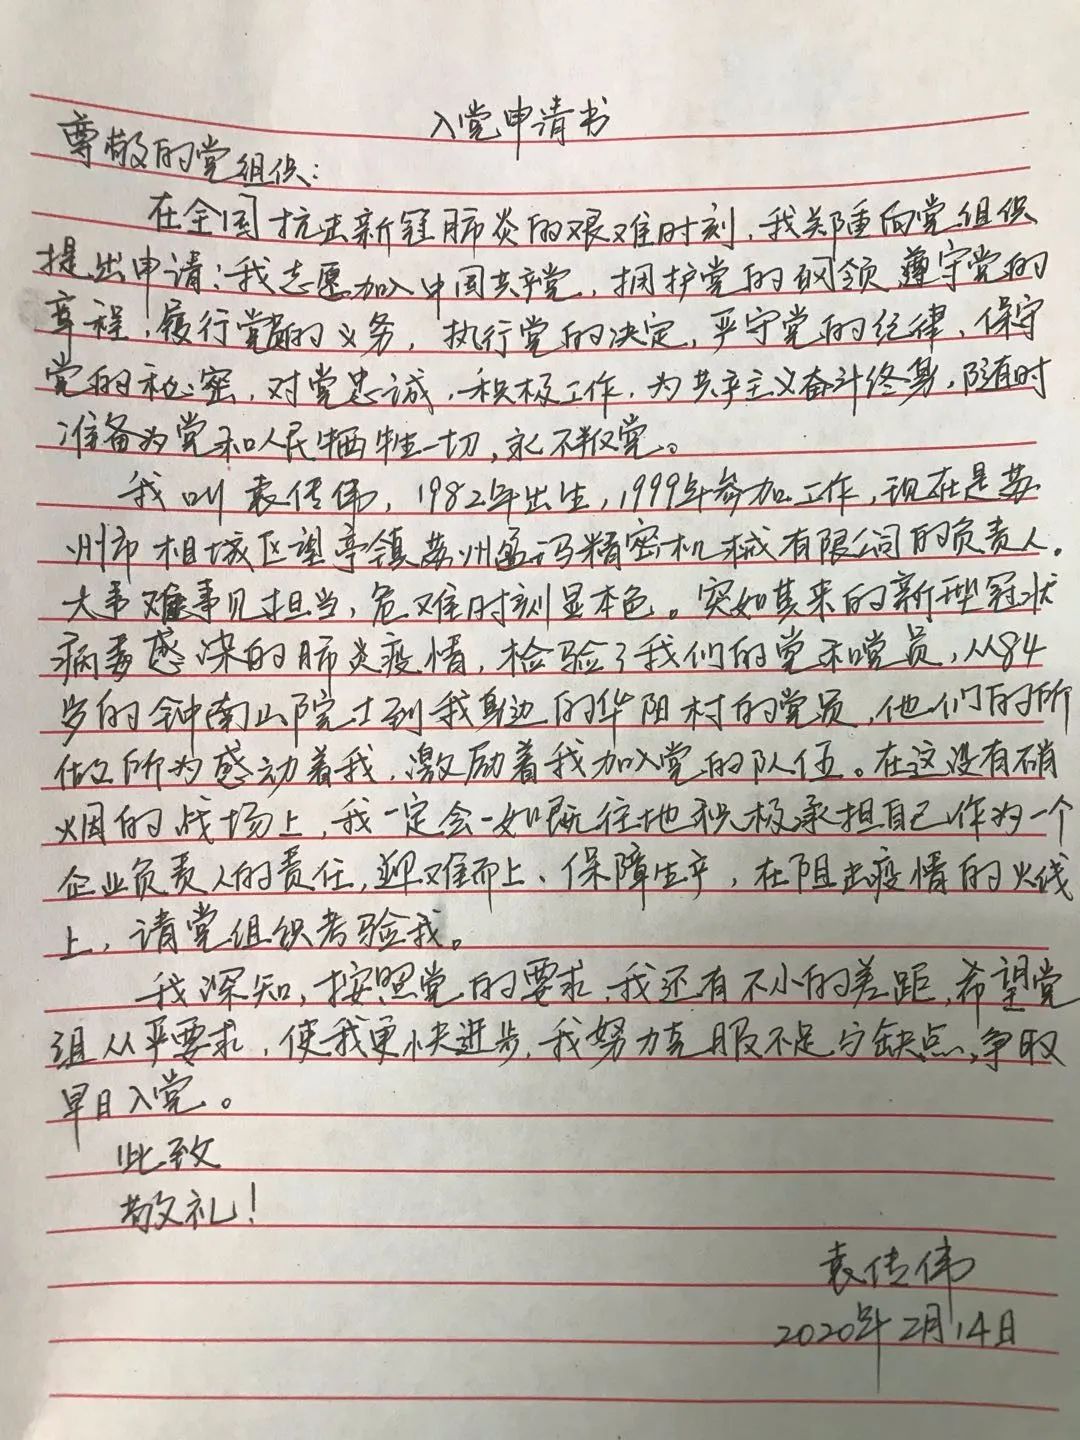 入党申请书
尊敬的党组织：
在全国抗击新冠肺炎的艰难时刻，我郑重向党组织
提出申请：我志愿加入中国共产党，拥护党的纲领，遵守党的
章程，履行党员的义务，执行党的决定，严守党的纪律，保守
党的秘密，对党忠诚，积极工作，为共产主义奋斗终身，随时
准备为党和人民牺牲一切，永不叛党。
我叫袁传伟，1982年出生，1999年参加工作，现在是苏
州市相城区望亭镇苏州孟冯精密机械有限公司的负责人。
大事难事见担当，危难时刻显本色。突如其来的新型冠状
病毒感染的肺炎疫情，检验了我们的党和党员，从84
岁的钟南山院士到我身边的华阳村的党员，他们的所
做所为感动着我，激励着我加入党的队伍。在这没有硝
烟的战场上，我一定会一如既往地积极承担自己作为一个
企业负责人的责任，迎难而上、保障生产，在阻击疫情的火线
上，请党组织考验我。
我深知，按照党的要求，我还有不小的差距，希望党
组从严要求，使我更快进步，我努力克服不足与缺点，争取
早日入党。
此致
敬礼！
袁传伟
2020年2月14日